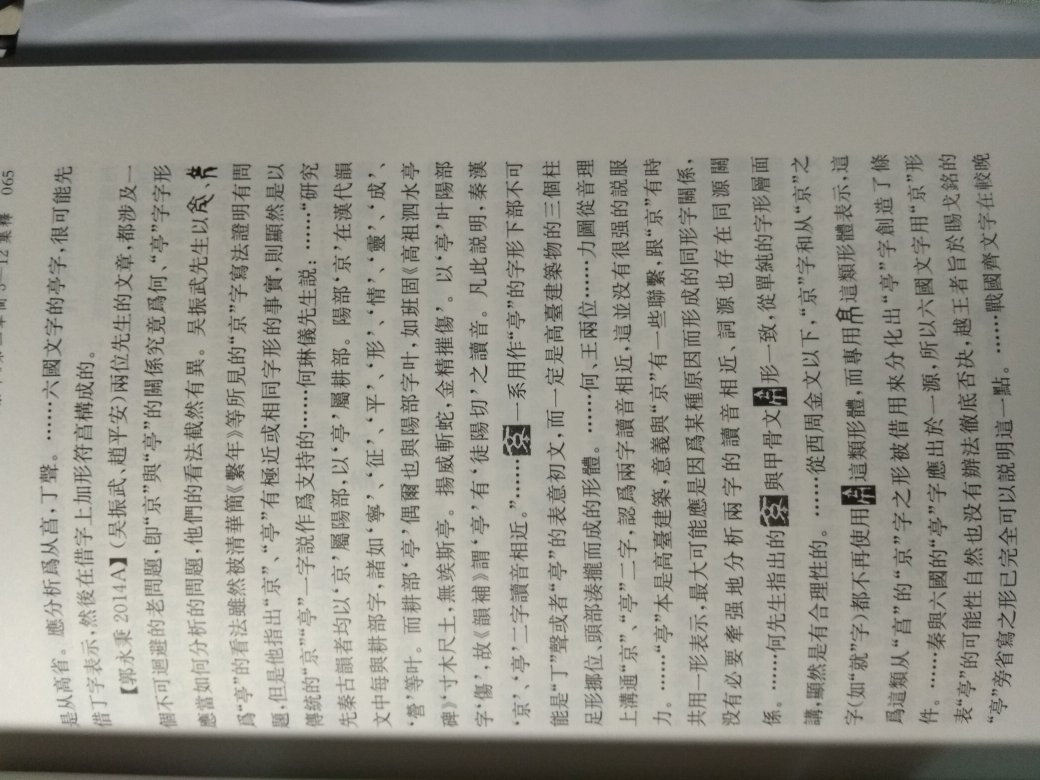 065
是从高省。應分析爲从亯，丁聲。……六國文字的亭字，很可能先
借丁字表示，然後在借字上加形符亯構成的。
【郭永秉2014A】（吴振武、趙平安）兩位先生的文章，都涉及一
個不可迴避的老問題，即“京”與“亭”的關係究竟爲何、“亭”字字形
應當如何分析的問題，他們的看法截然有異。吴振武先生以
爲“亭”的看法雖然被清華簡《繫年》等所見的“京”字寫法證明有問
題，但是他指出“京”、“亭”有極近或相同字形的事實，則顯然是以
傳統的“京”“亭”一字説作爲支持的……何琳儀先生説：……“研究
先秦古韻者均以‘京’屬陽部，以‘亭’屬耕部。陽部‘京’在漢代韻
文中每與耕部字，諸如‘寧’、‘征’、‘平’、‘形’、‘情’、‘靈’、‘成’、
‘營’等叶。而耕部‘亭’偶爾也與陽部字叶，如班固《高祖泗水亭
碑》‘寸木尺土，無竢斯亭。揚威斬蛇，金精摧傷’。以‘亭’叶陽部
字‘傷’，故《韻補》謂‘亭’有‘徒陽切’之讀音。凡此説明，秦漢
‘京’、‘亭’二字讀音相近。”……一系用作“亭”的字形下部不可
能是“丁”聲或者“亭”的表意初文，而一定是高臺建築物的三個柱
足形挪位、頭部湊攏而成的形體。……何、王兩位……力圖從音理
上溝通“京”、“亭”二字，認爲兩字讀音相近，這並没有很强的説服
力。……“亭”本是高臺建築，意義與“京”有一些聯繫，跟“京”有時
共用一形表示，最大可能應是因爲某種原因而形成的同形字關係，
没有必要牽强地分析兩字的讀音相近、詞源也存在同源關
係。……何先生指出的與甲骨文形一致，從單純的字形層面
講，顯然是有合理性的。……從西周金文以下，“京”字和从“京”之
字（如“就”字）都不再使用這類形體，而專用這類形體表示，這
爲這類从“亯”的“京”字之形被借用來分化出“亭”字創造了條
件。……秦與六國的“亭”字應出於一源，所以六國文字用“京”形
表“亭”的可能性自然也没有辦法徹底否決，越王者旨於賜戈銘的
“亭”旁省寫之形已完全可以説明這一點。……戰國齊文字在較晚